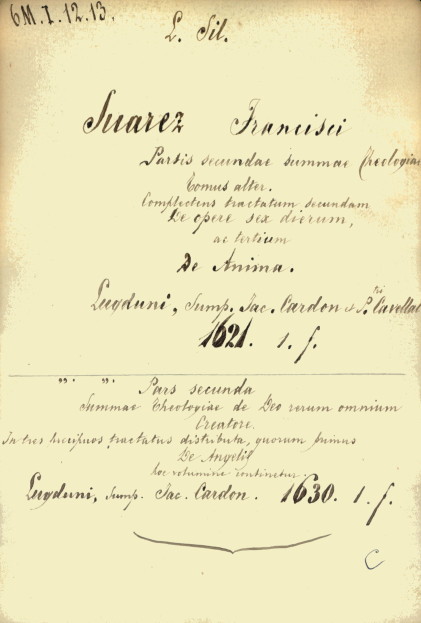 6M.I.12.13.
L. Sil.
Suarez Francisci
Partis secundae summae Theologiae
Tomus alter.
Complectens tractatum secundam
De opere sex dierum,
ac tertium
De Anima.
Lugduni, Sump. Jac. Cardon & P.tri Cavellat
1621. 1. f.
"" ""
Pars secunda
Summae Theologiae de Deo rerum omnium
Creatore.
In tres praecipuos tractatus distributa, quorum primus
De Angelis
hoc volumine continetur.
Lugduni, Sump. Jac. Cardon. 1630. 1. f.
C